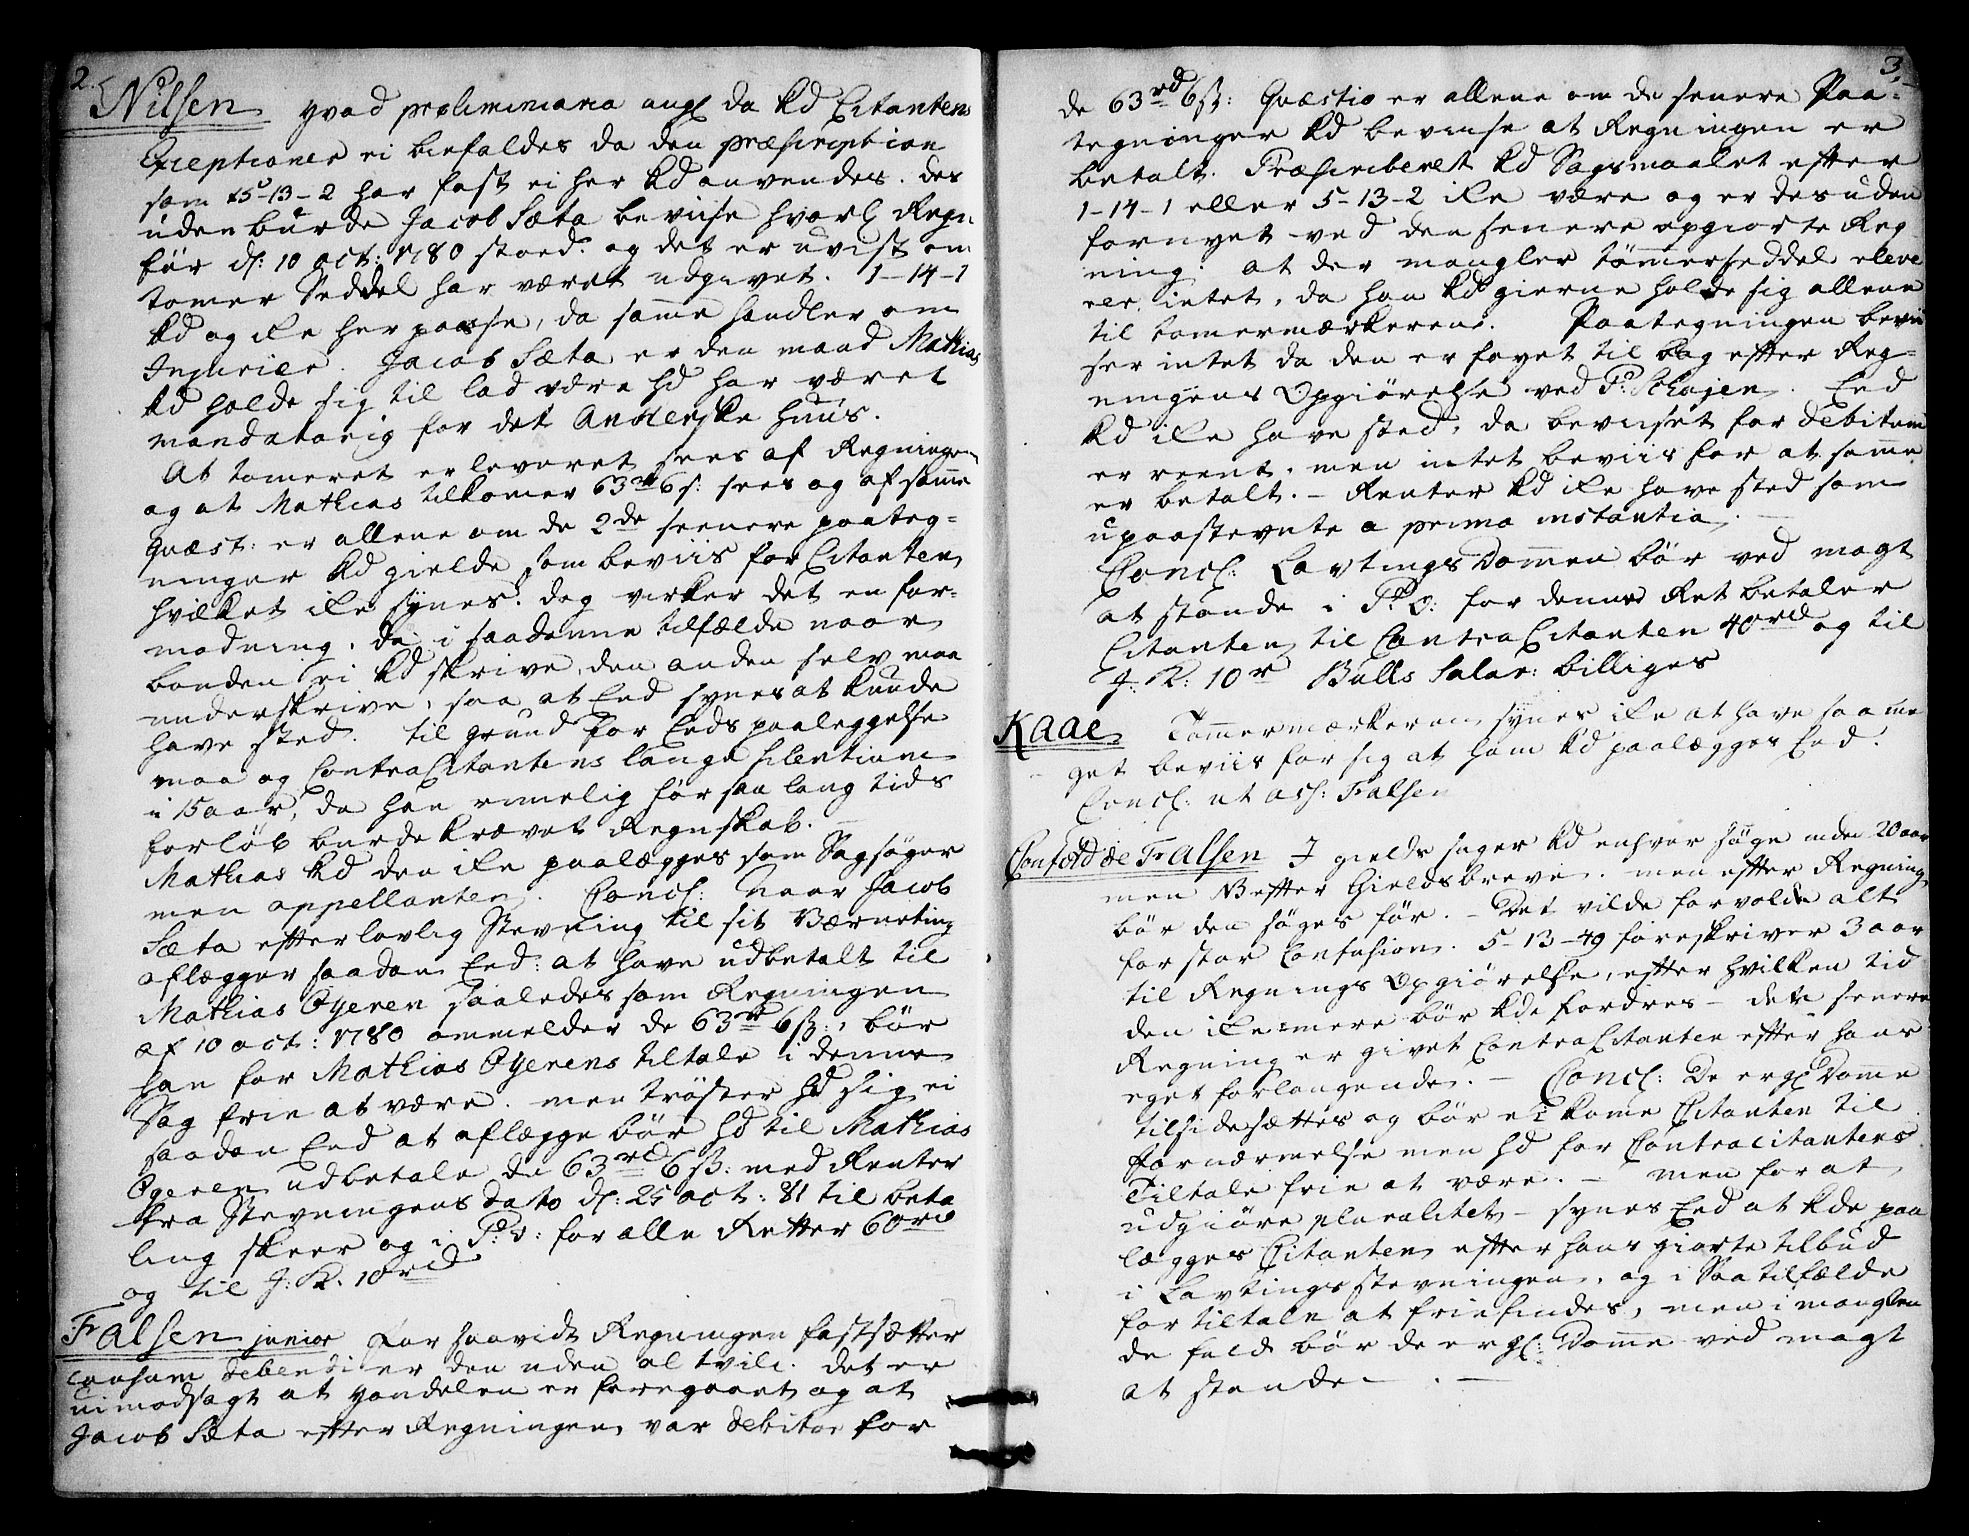 2.
Nilsen hvad præliminaria angl da kd Citantens
Exceptioner ei biefaldes da den præscription
som 5-13-2 har fast ei her kd anvendes. Des
uden burde Jacob Sæta beviise hvorl Regn
før dl: 10 oct: 1780 stoed. og det er uvist om
tomer Seddel har været udgivet. 1-14-1
kd og ike her passe, da samme handler om
Injurier. Jacob Sæta er den mand Mathias
kd holde sig til lad være hd har været
mandatarig for det Ankerske huus.
At tomeret er leveret sees af Regningen
og at Mathias tilkomer 63rd 6s: sees og af samme
Quæst: er allene om de 2de senere paateg=
ninger kd gielde som beviis for Citanten,
hvilket ike synes. dog virker det en for=
modning, da i saadanne tilfælde naar
bonden ei kd skrive, den anden selv maa
underskrive, saa at Eed synes at kunde
have sted. til grund for Eeds paaleggelse
maa og ContraCitantens lange silentium
i 15 aar, da han rimelig før saa lang tids
forløb burde krævet Regnskab. –
Mathias kd den ike paalægges som Sagsøger
men appellanten. Concl: Naar Jacob
Sæta efter lovlig Stevning til sit Værneting
aflægger saadan Eed: at have udbetalt til
Mathias Øgeren saaledes som Regningen
af 10 oct: 1780 ommelder de 63rd 6ß:, bør
han for Mathias Øgerens tiltale i denne
Sag frie at være. men trøster hd sig ei
saadan Eed at aflægge bør hd til Mathias
Øgeren udbetale de 63rd 6ß: med Renter
fra Stevningens dato dl: 25 oct: 81 til beta
ling skeer og i P: O: for alle Retter 60rd
og til J: K. 10rd
Falsen junior For saavidt Regningen fastsætter
causam debendi er den uden al tvil. det er
uimodsagt at handelen er foregaaet og at
Jacob Sæta efter Regningen var debitor for
3.
de 63rd 6ß: Quæstio er allene om de senere Paa=
tegninger kd beviise at Regningen er
betalt. Præscriberet kd Sagsmaalet efter
1-14-1 eller 5-13-2 ike være og er desuden
fornyet ved den senere opgiorte Reg
ning. at der mangler tømmerseddel eleve
rer intet, da han kd gierne holde sig allene
til tomermærkeren. Paategningen bevii
ser intet da den er føyet til bag efter Reg=
ningens Opgiørelse ved P: Schøjen. Eed
kd ike have sted, da beviiset for debitum
er reent. men intet beviis for at samme
er betalt. – Renter kd ike have sted som
upaastevnte a prima instantia. –
Concl: Lavtings Dommen bør ved magt
at stande i P: O: for denne Ret betaler
Citanten til ContraCitanten 40rd og til
J: K: 10r Bulls Salar: billiges
Kaae Tømmermærkeren synes ike at have saa me
get beviis for sig at ham kd paalægges Eed.
Concl: ut ass: Falsen
Conf: de Falsen I gields sager kd enhver søge inden 20 aar
men NB efter Gieldsbreve. men efter Regning
bør den søges før. – Det vilde forvolde alt
for stor Confusion. 5-13-49 foreskriver 3 aar
til Regnings Opgiørelse, efter hvilken tid
den ike mere bør kde fordres – den senere
Regning er givet ContraCitanten efter hans
eget forlangende. – Concl: De ergl Domme
tilsidesættes og bør ei kome Citanten til
fornærmelse men hd for Contracitantens
Tiltale frie at være. – men for at
udgiøre pluralitet – synes Eed at kde paa
lægges Citanten efter hans giorte tilbud
i Lavtingsstevningen. og i saa tilfælde
for tiltale at friefindes, men i manglen
de fald bør de ergl: Domme ved magt
at stande. –